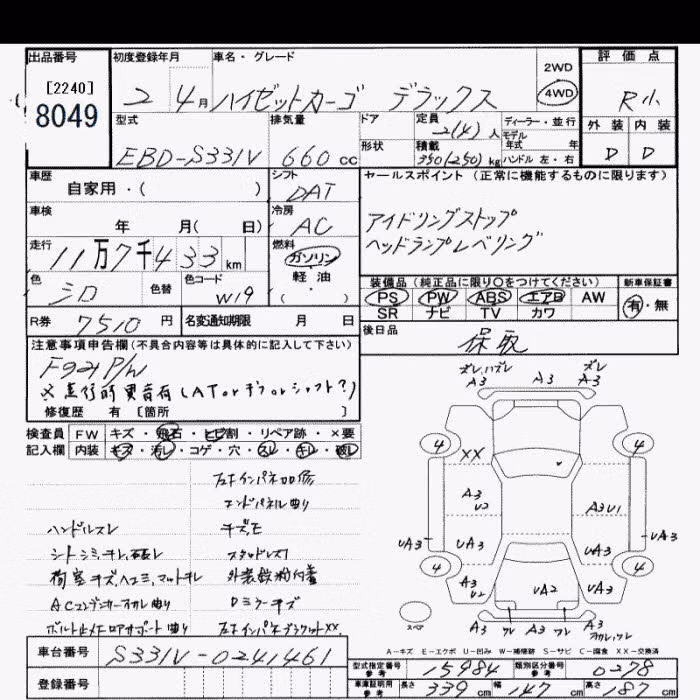 出品番号 初度登録年月 車名・グレード 評価点
[2240]
8049
2 4月 ハイゼットカーゴ デラックス 2WD 4WD R小
型式 排気量 ドア 定員 2(4)人 ディーラー・並行 外装 内装
モデル年式 年
EBD-S331V 660cc 形状 積載 350(250)kg ハンドル 左・右 D D
車歴 シフト セールスポイント(正常に機能するものに限ります)
自家用・( ) DAT
車検 冷房 アイドリングストップ
年 月( 日) AC ヘッドランプレベリング
走行 燃料
11万7千433km ガソリン
色 色替 色コード 軽・油 装備品(純正品に限り○をつけてください) 新車保証書
シロ W19 ( ) PS PW ABS エアB AW 有・無
SR ナビ TV カワ
R券 7510円 名変通知期限 月 日 後日品
保取
注意事項申告欄(不具合内容等は具体的に記入して下さい)
※走行時異音有(ATorデフorシャフト?)
修復歴 有 [箇所 ]
検査員 FW キズ・飛石・ヒビ割・リペア跡・×要
記入欄 内装 キズ・汚レ・コゲ・穴・スレ・キレ・破レ
左Fインパネ凹修
エンドパネル曲り
ハンドルスレ
スタッドレス
荷室キズ、ヘコミ、マットキレ 外装鉄粉付着
ACコンデンサーカカレ曲り Dミラーキズ
左Fインパネブラケット××
ズレ、ハズレ ズレ
A3 A3 A3
4 4
XX
A3 U2 A3 U1
UA3 UA3 UA3 UA3
4 4
A3 U2 UA2 A3
A3 ワレ A3 ワレ A3
スペア
A-キズ E-エクボ U-凹み W-補修跡 S-サビ C-腐食 XX-交換済
車台番号 S331V-0241461
登録番号
型式指定番号 参考 15984 類別区分番号 参考 0278
車庫証明用 参考 長さ 339cm 幅 147cm 高さ 187cm